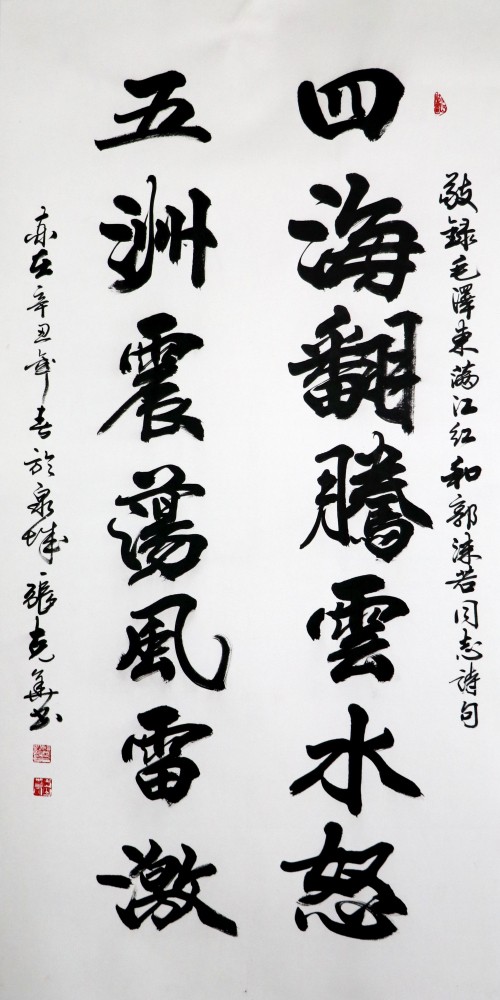 敬録毛澤東滿江紅和郭沫若同志詩句
四海翻騰雲水怒
五洲震蕩風雷激
辛丑年春於泉城張克華书